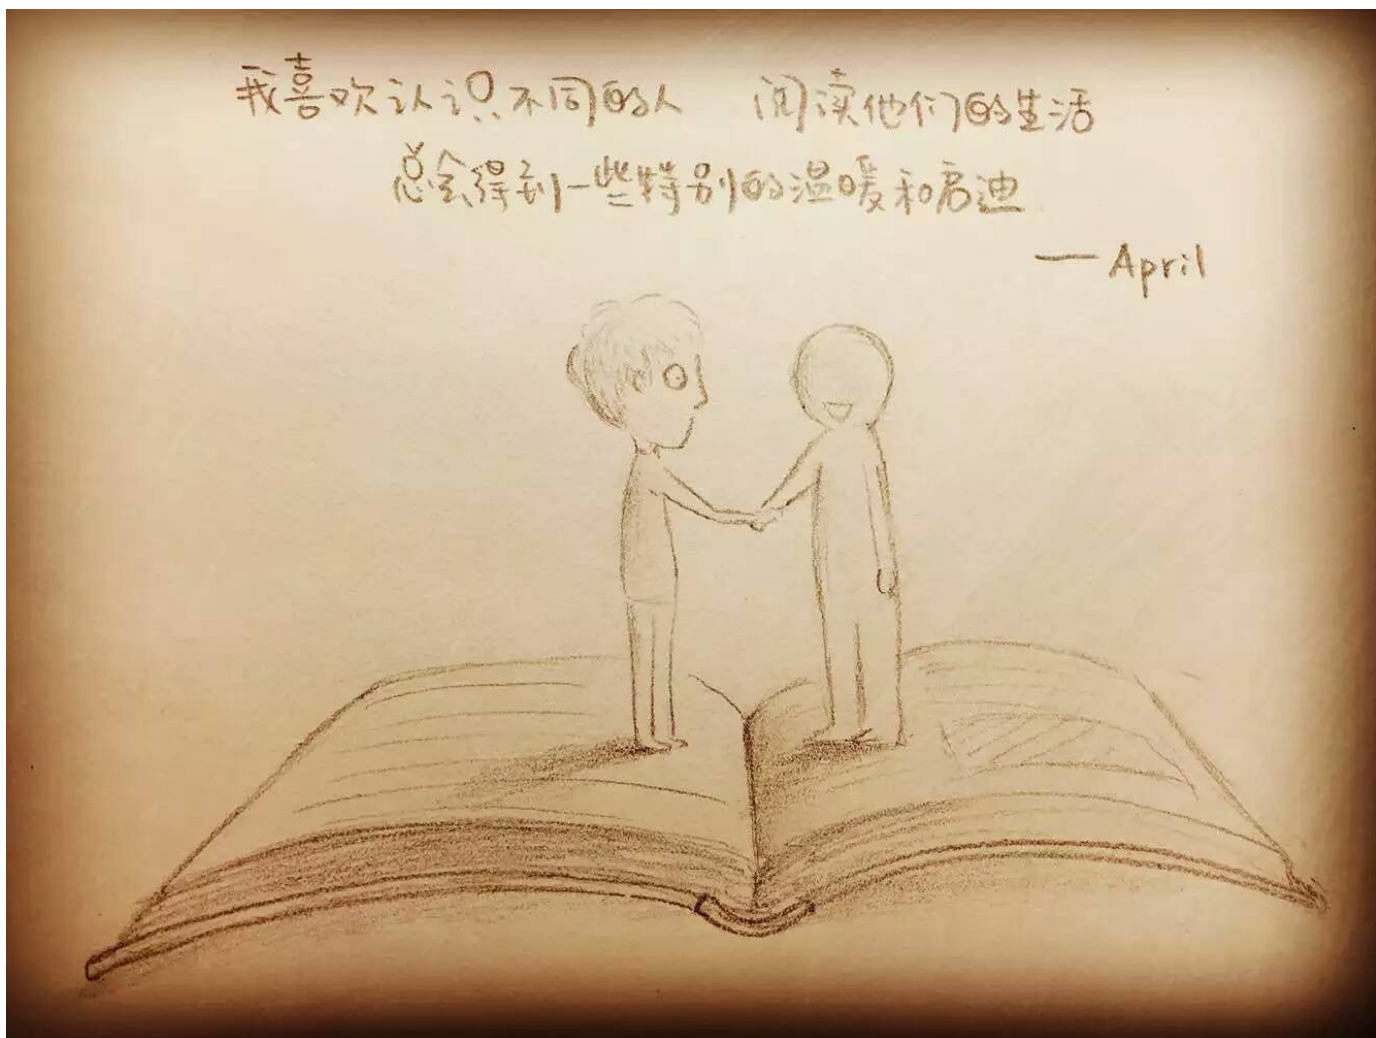 我喜欢认识不同的人 阅读他们的生活
总会得到一些特别的温暖和启迪
— April